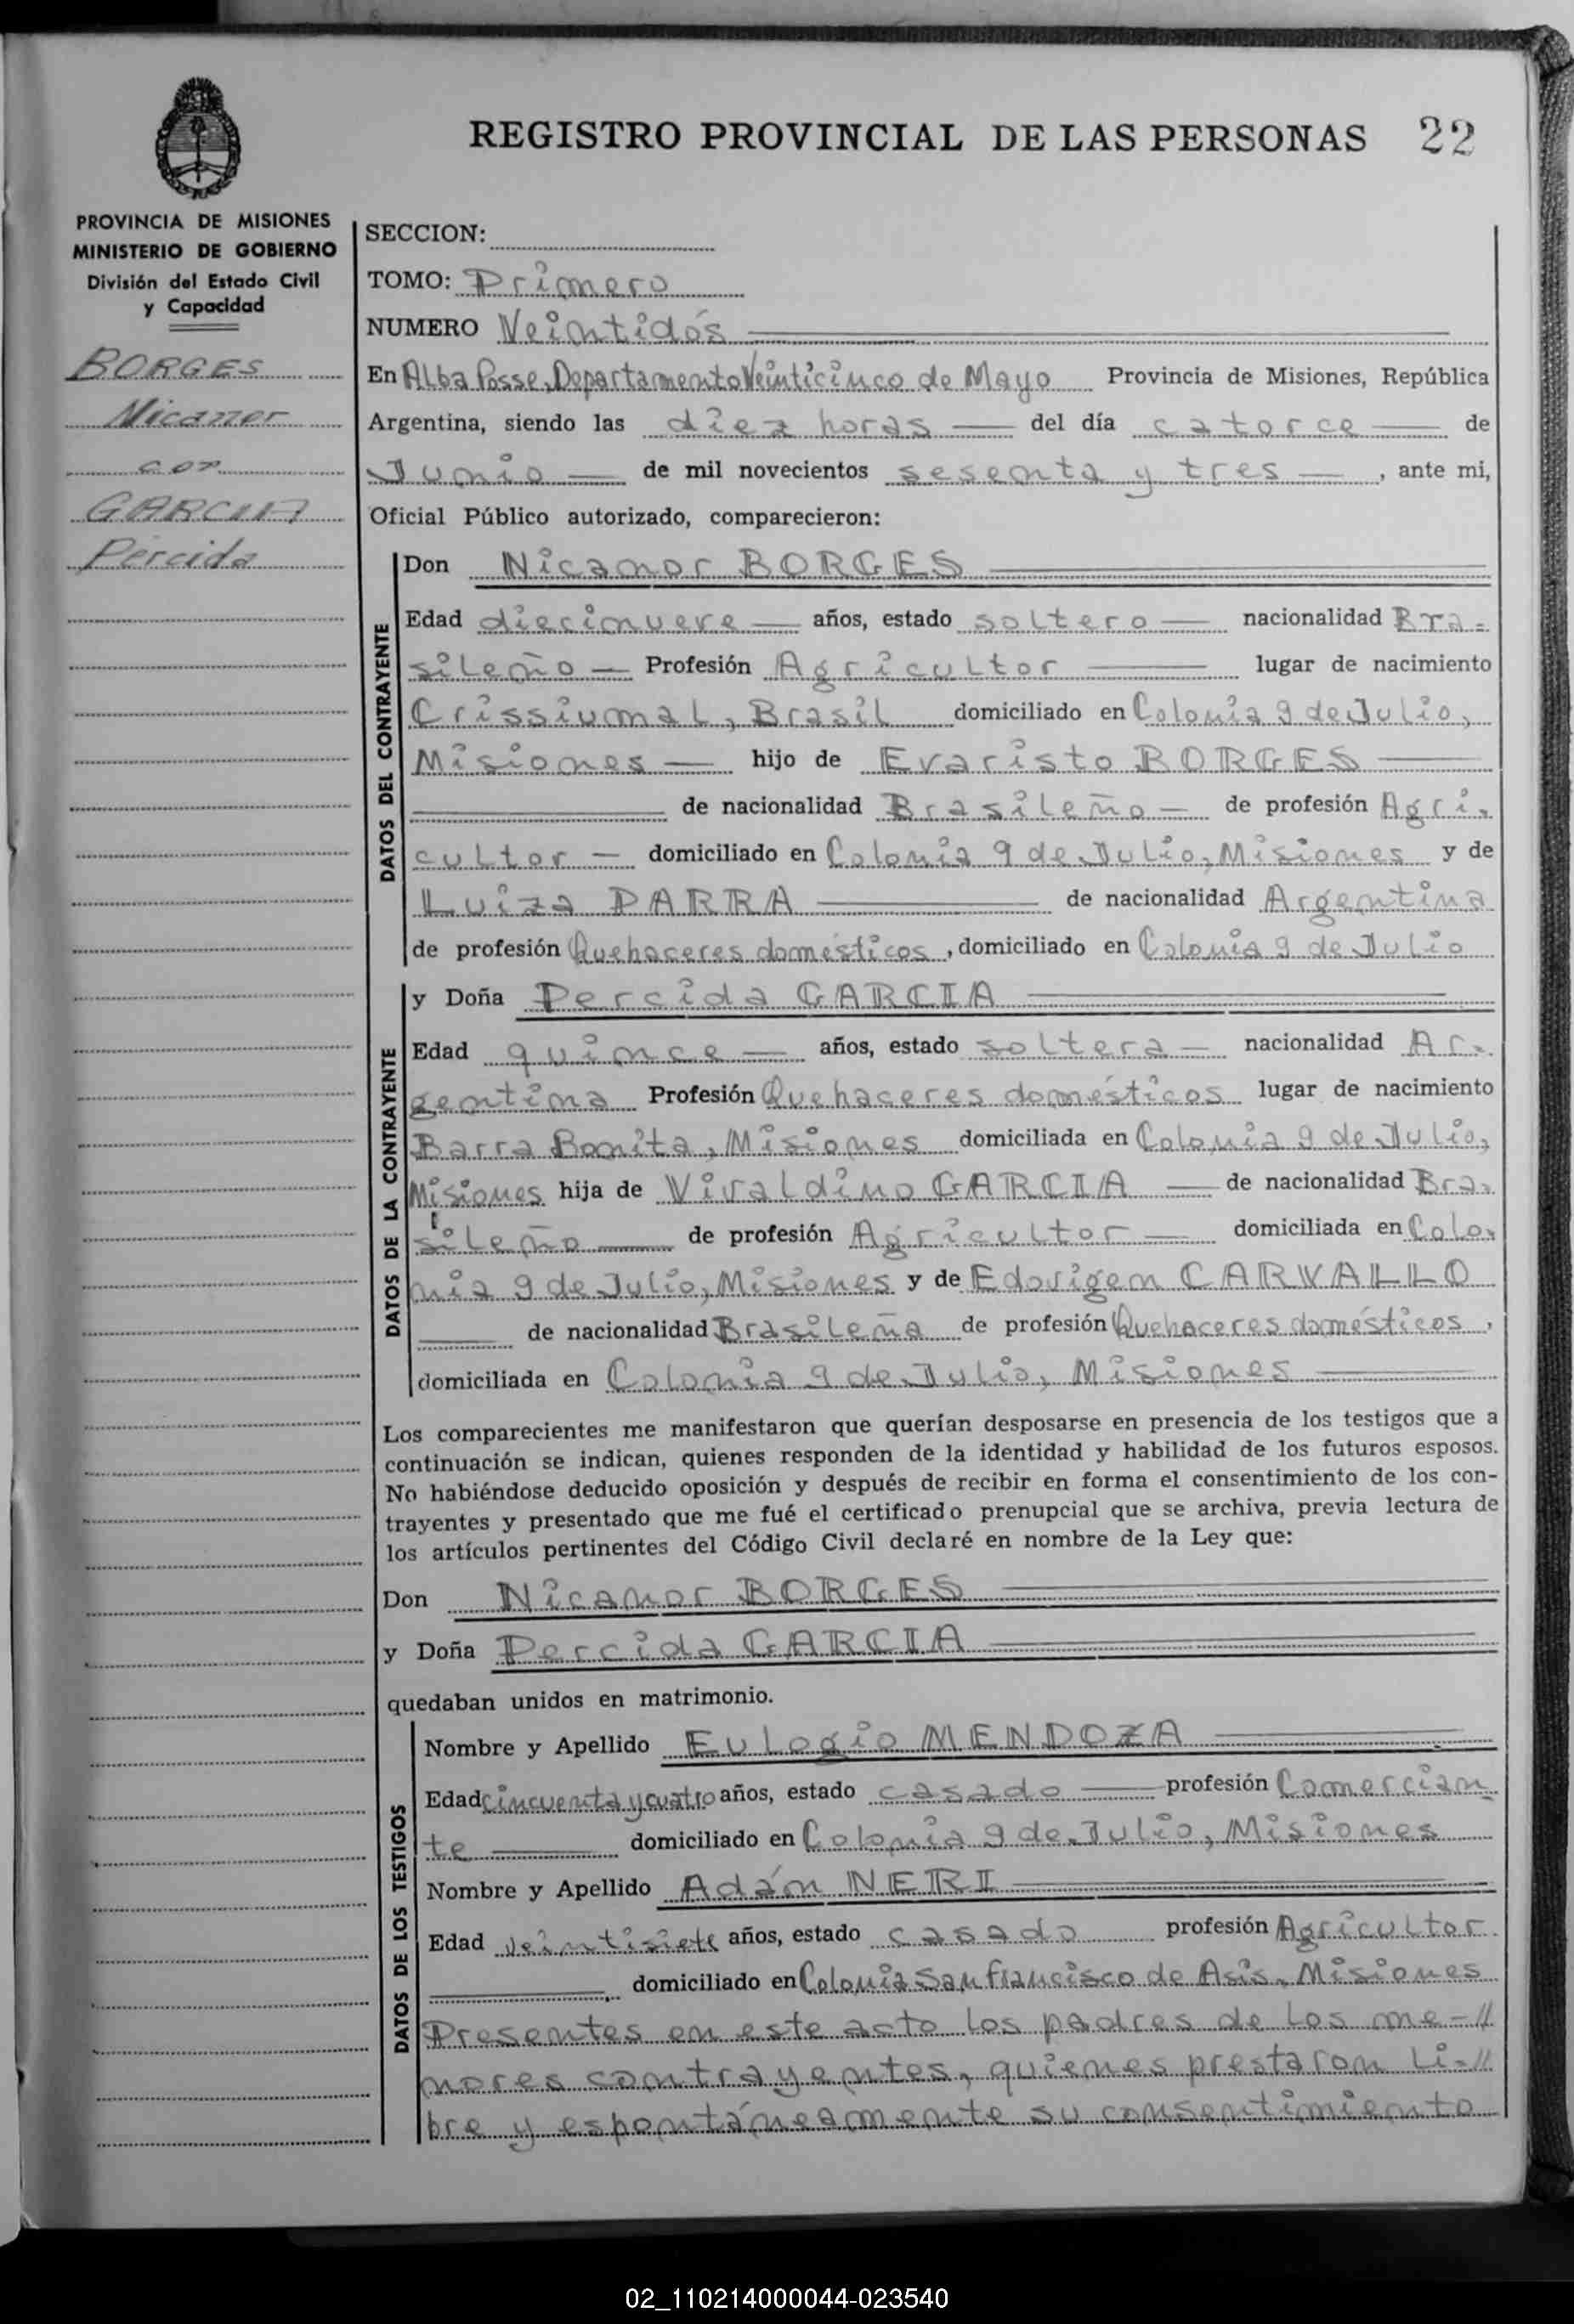 REGISTRO PROVINCIAL DE LAS PERSONAS 22
PROVINCIA DE MISIONES
MINISTERIO DE GOBIERNO
División del Estado Civil
y Capacidad
BORGES
Nicanor
con
GARCIA
Percida
SECCION:
TOMO: Primero
NUMERO Veintidós
En Alba Posse, Departamento Veinticinco de Mayo Provincia de Misiones, República
Argentina, siendo las diez horas — del día catorce — de
Junio — de mil novecientos sesenta y tres — , ante mi,
Oficial Público autorizado, comparecieron:
DATOS DEL CONTRAYENTE
Don Nicanor BORGES
Edad diecinueve — años, estado soltero — nacionalidad Bra-
sileño — Profesión Agricultor — lugar de nacimiento
Crissiumal, Brasil domiciliado en Colonia 9 de Julio,
Misiones — hijo de Evaristo BORGES —
— de nacionalidad Brasileño — de profesión Agri-
cultor — domiciliado en Colonia 9 de Julio, Misiones y de
Luiza PARRA — de nacionalidad Argentina
de profesión Quehaceres domésticos, domiciliado en Colonia 9 de Julio
DATOS DE LA CONTRAYENTE
y Doña Percida GARCIA
Edad quince — años, estado soltera — nacionalidad Ar-
gentina Profesión Quehaceres domésticos lugar de nacimiento
Barra Bonita, Misiones domiciliada en Colonia 9 de Julio,
Misiones hija de Vivaldino GARCIA — de nacionalidad Bra-
sileño — de profesión Agricultor — domiciliada en Colo-
nia 9 de Julio, Misiones y de Edorigem CARVALLO
— de nacionalidad Brasileña de profesión Quehaceres domésticos,
domiciliada en Colonia 9 de Julio, Misiones —
Los comparecientes me manifestaron que querían desposarse en presencia de los testigos que a
continuación se indican, quienes responden de la identidad y habilidad de los futuros esposos.
No habiéndose deducido oposición y después de recibir en forma el consentimiento de los con-
trayentes y presentado que me fué el certificado prenupcial que se archiva, previa lectura de
los artículos pertinentes del Código Civil declaré en nombre de la Ley que:
Don Nicanor BORGES
y Doña Percida GARCIA
quedaban unidos en matrimonio.
DATOS DE LOS TESTIGOS
Nombre y Apellido Eulogio MENDOZA
Edad cincuenta y cuatro años, estado casado — profesión Comercian
te — domiciliado en Colonia 9 de Julio, Misiones
Nombre y Apellido Adán NERI
Edad veintisiete años, estado casado profesión Agricultor
— domiciliado en Colonia San Francisco de Asís, Misiones
Presentes en este acto los padres de los me-//
nores contrayentes, quienes prestaron li-//
bre y espontáneamente su consentimiento
02_110214000044-023540